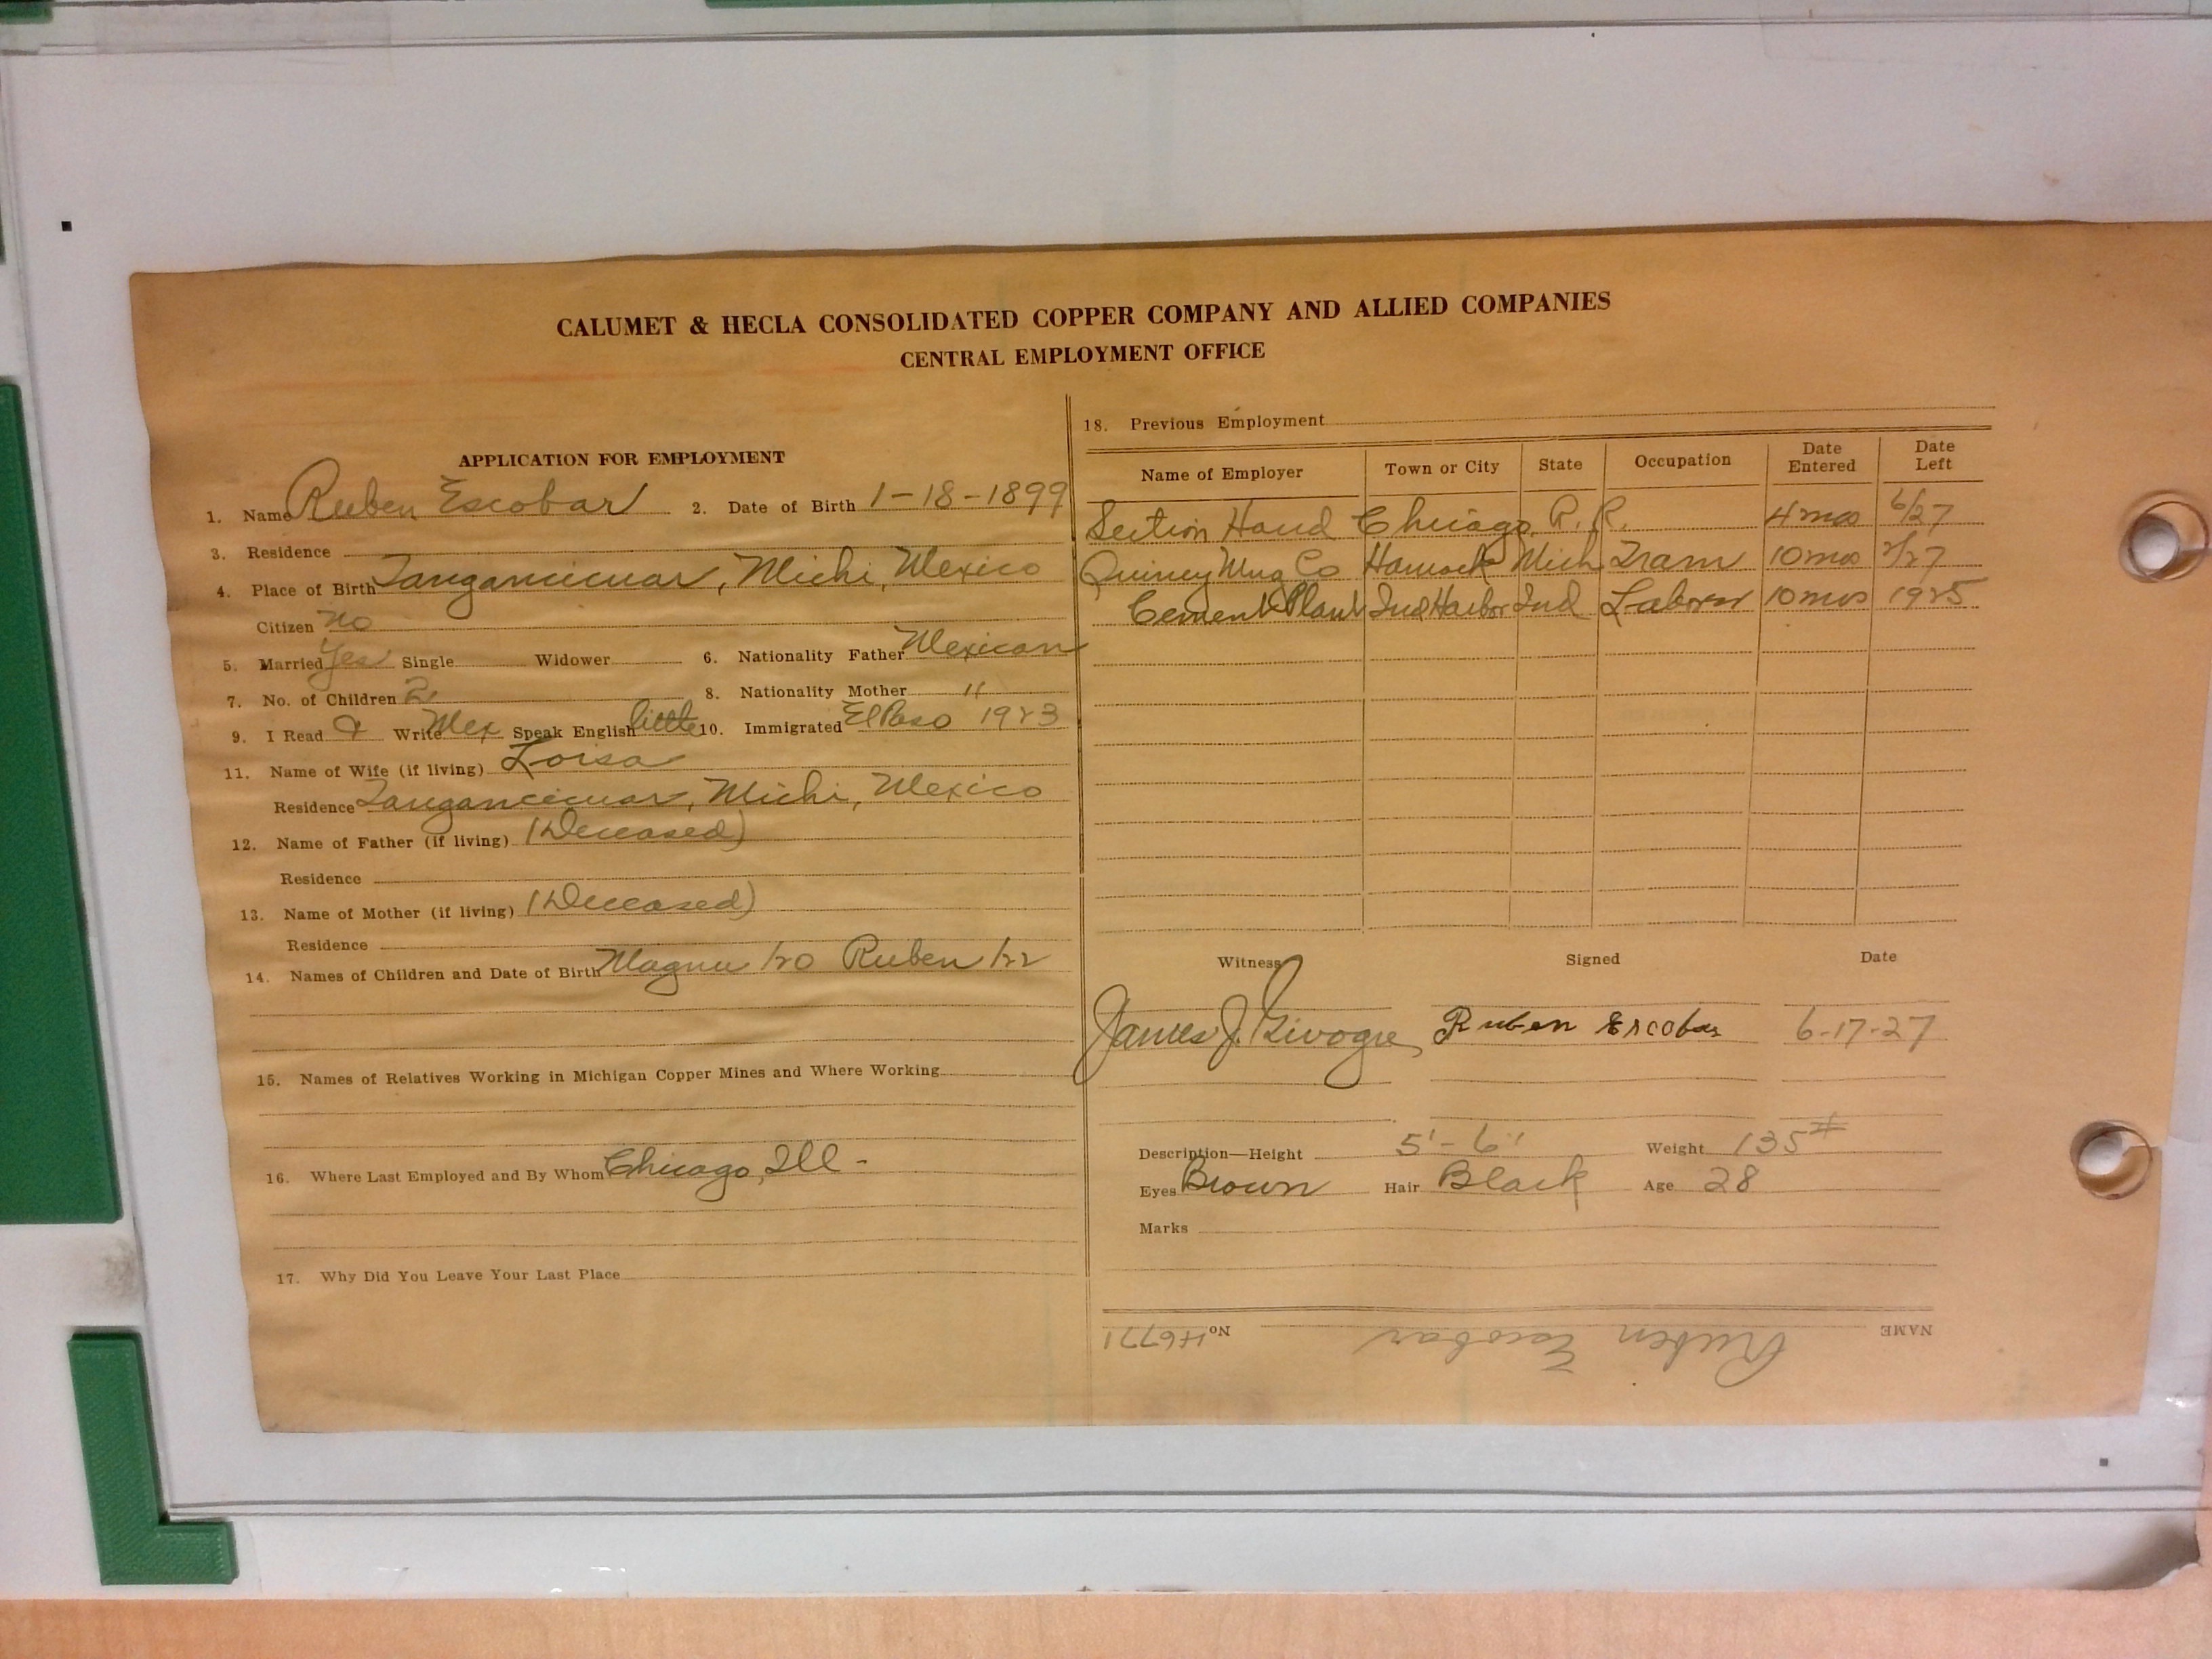 CALUMET & HECLA CONSOLIDATED COPPER COMPANY AND ALLIED COMPANIES
CENTRAL EMPLOYMENT OFFICE
APPLICATION FOR EMPLOYMENT
1. Name Ruben Escobar 2. Date of Birth 1-18-1899
3. Residence
4. Place of Birth Tangancicuar, Michi, Mexico
Citizen no
5. Married Yes Single Widower 6. Nationality Father Mexican
7. No. of Children 2 8. Nationality Mother "
9. I Read & Write Mex Speak English little 10. Immigrated El Paso 1923
11. Name of Wife (if living) Loisa
Residence Tangancicuar, Michi, Mexico
12. Name of Father (if living) (Deceased)
Residence
13. Name of Mother (if living) (Deceased)
Residence
14. Names of Children and Date of Birth 1/20 Ruben 1/22
15. Names of Relatives Working in Michigan Copper Mines and Where Working
16. Where Last Employed and By Whom Chicago, Ill -
17. Why Did You Leave Your Last Place
18. Previous Employment
Name of Employer Town or City State Occupation Date Entered Date Left
Section Hand Chicago, R.R. 4 mos 6/27
Quincy Mng Co Hancock Mich Tram 10 mos 2/27
Cement Plant Ind Harbor Ind Laborer 10 mos 1925
Witness Signed Date
James J. Ruben Escobar 6-17-27
Description—Height 5'-6" Weight 135#
Eyes Brown Hair Black Age 28
Marks
NAME Ruben Escobar No H6771